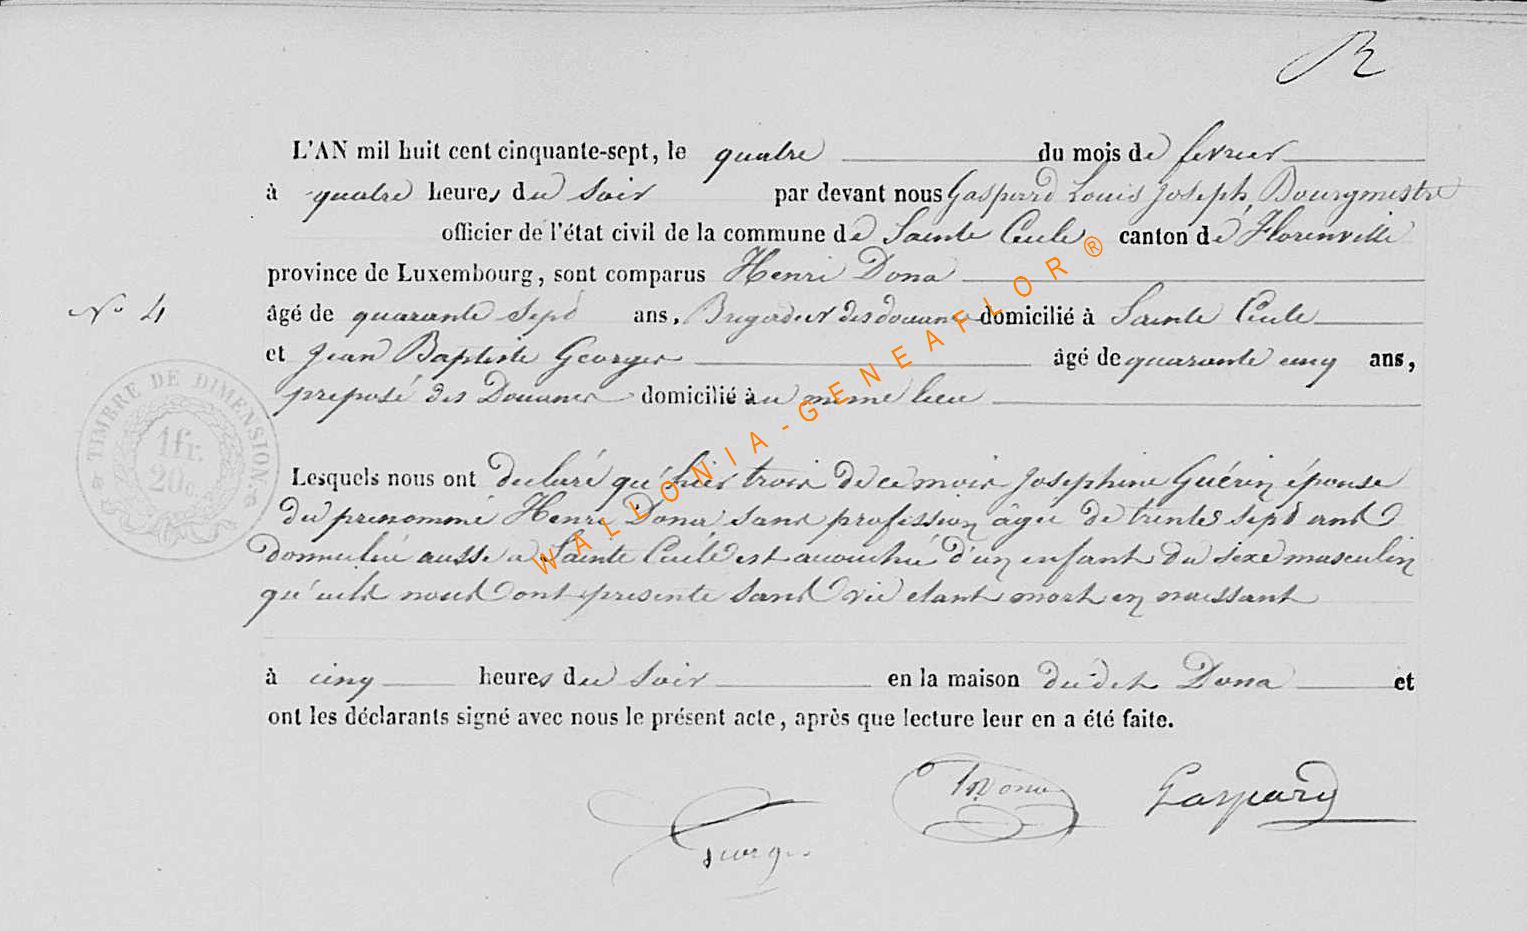 R
L'AN mil huit cent cinquante-sept, le quatre du mois de fevrier
à quatre heures du soir par devant nous Gaspard Louis Joseph, Bourgmestre
officier de l'état civil de la commune de Sainte Cecile canton de Florenville
province de Luxembourg, sont comparus Henri Dona
N° 4
âgé de quarante sept ans, Brigadier des douanes domicilié à Sainte Cecile
et Jean Baptiste Georges âgé de quarante cinq ans,
preposé des Douanes domicilié au même lieu
TIMBRE DE DIMENSION.
1fr.
20c.
Lesquels nous ont declaré qu'hier trois de ce mois Josephine Guérin épouse
du prenommé Henri Dona sans profession âgée de trente sept ans
domiciliée aussi a Sainte Cecile est accouchée d'un enfant du sexe masculin
qu'ils nous ont presenté sans vie etant mort en naissant
à cinq heures du soir en la maison du dit Dona et
ont les déclarants signé avec nous le présent acte, après que lecture leur en a été faite.
Georges Dona Gaspard
WALLONIA-GENEAFLOR®